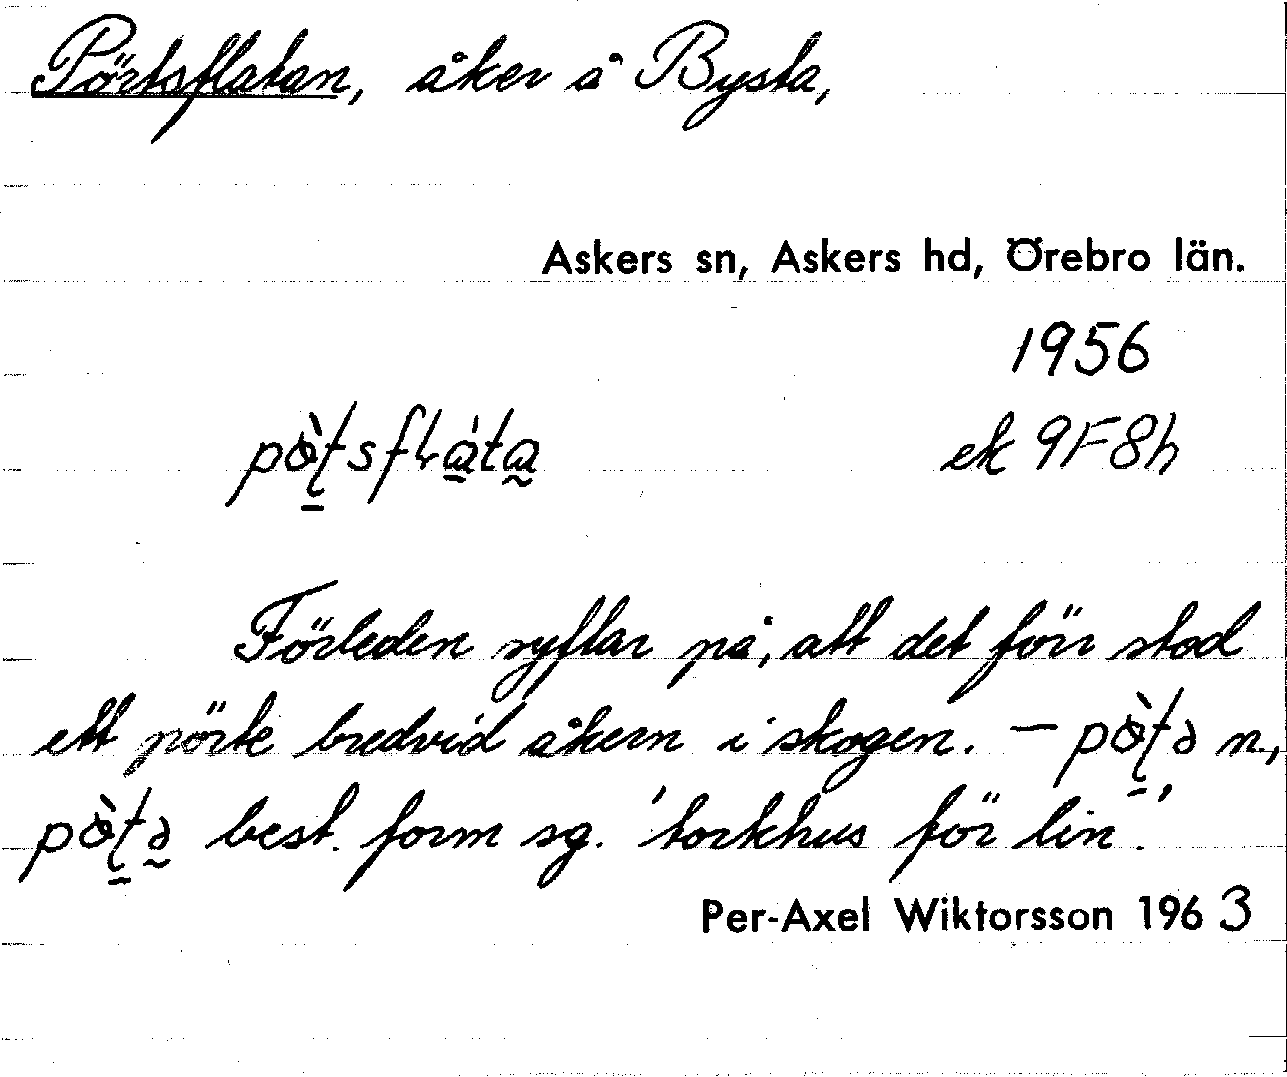 Pörtsflatan, åker å Bysta,
Askers sn, Askers hd, Örebro län.
1956
ek 9F8h
Förleden syftar på, att det förr stod
ett pörte bredvid åkern i skogen. – n.,
best. form sg. 'torkhus för lin'.
Per-Axel Wiktorsson 1963